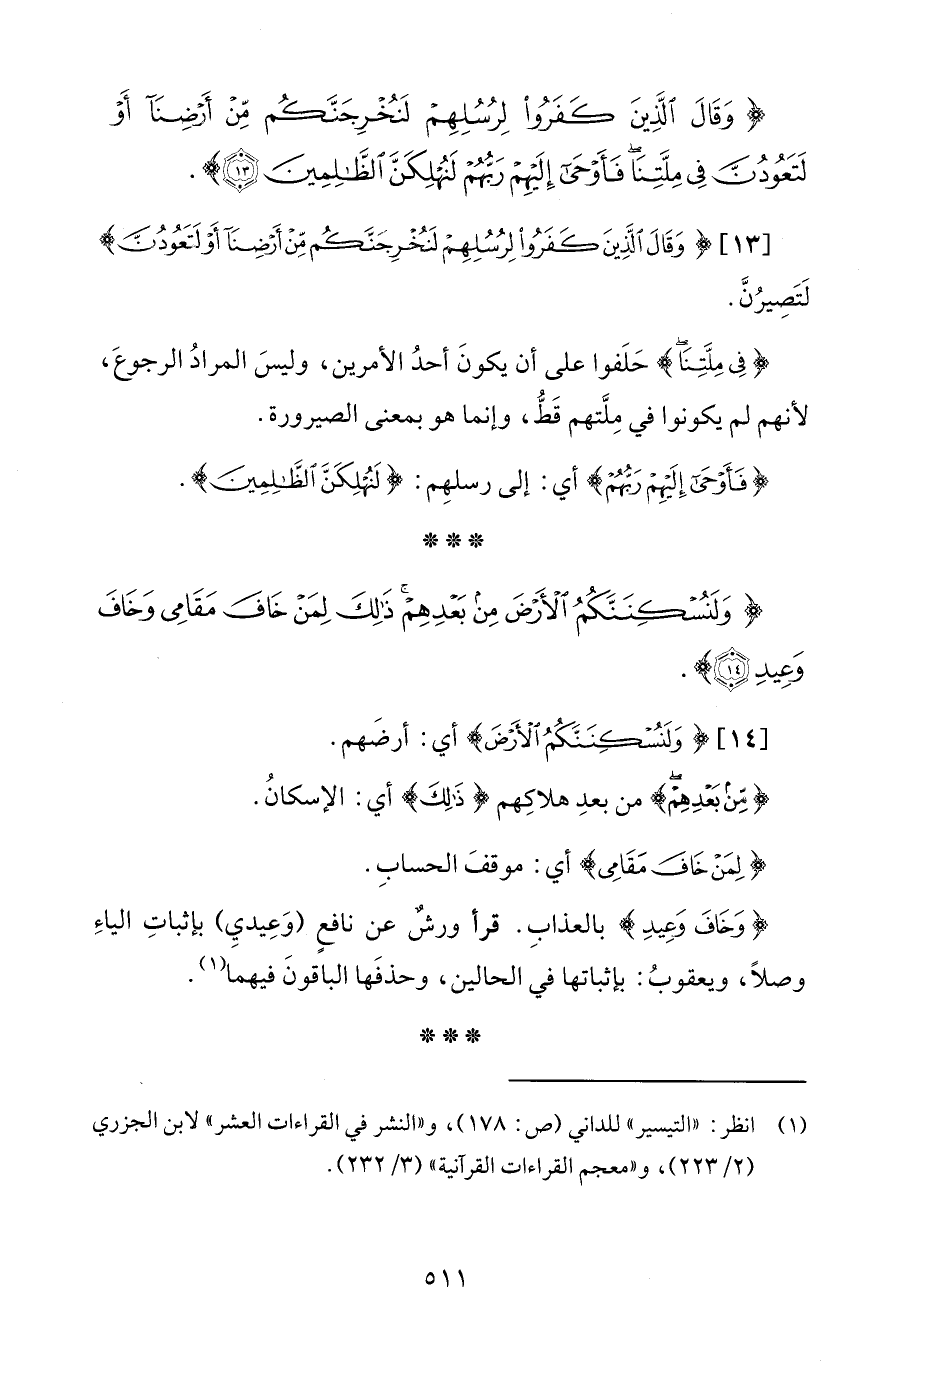 ﴿ وَقَالَ ٱلَّذِينَ كَفَرُوا۟ لِرُسُلِهِمْ لَنُخْرِجَنَّكُم مِّنْ أَرْضِنَآ أَوْ
لَتَعُودُنَّ فِى مِلَّتِنَا ۖ فَأَوْحَىٰٓ إِلَيْهِمْ رَبُّهُمْ لَنُهْلِكَنَّ ٱلظَّـٰلِمِينَ ١٣﴾ .
[١٣] ﴿ وَقَالَ ٱلَّذِينَ كَفَرُوا۟ لِرُسُلِهِمْ لَنُخْرِجَنَّكُم مِّنْ أَرْضِنَآ أَوْ لَتَعُودُنَّ ﴾
لَتَصِيرُنَّ.
﴿ فِى مِلَّتِنَا ۖ ﴾ حَلَفوا على أن يكونَ أحدُ الأمرين، وليسَ المرادُ الرجوعَ،
لأنهم لم يكونوا في مِلَّتهم قَطُّ، وإنما هو بمعنى الصيرورة.
﴿ فَأَوْحَىٰٓ إِلَيْهِمْ رَبُّهُمْ ﴾ أي: إلى رسلهِم: ﴿ لَنُهْلِكَنَّ ٱلظَّـٰلِمِينَ ﴾ .
* * *
﴿ وَلَنُسْكِنَنَّكُمُ ٱلْأَرْضَ مِنۢ بَعْدِهِمْ ۚ ذَٰلِكَ لِمَنْ خَافَ مَقَامِى وَخَافَ
وَعِيدِ ١٤﴾ .
[١٤] ﴿ وَلَنُسْكِنَنَّكُمُ ٱلْأَرْضَ ﴾ أي: أرضَهم.
﴿ مِّنۢ بَعْدِهِمْ ۖ ﴾ من بعدِ هلاكِهم ﴿ ذَٰلِكَ ﴾ أي: الإسكانُ.
﴿ لِمَنْ خَافَ مَقَامِى ﴾ أي: موقفَ الحسابِ.
﴿ وَخَافَ وَعِيدِ ﴾ بالعذابِ. قرأ ورشٌ عن نافعٍ (وَعِيدِي) بإثباتِ الياءِ
وصلاً، ويعقوبُ: بإثباتها في الحالين، وحذفَها الباقونَ فيهما(١).
* * *
(١) انظر: «التيسير» للداني (ص: ١٧٨)، و«النشر في القراءات العشر» لابن الجزري
(٢/ ٢٢٣)، و«معجم القراءات القرآنية» (٣/ ٢٣٢).
٥١١